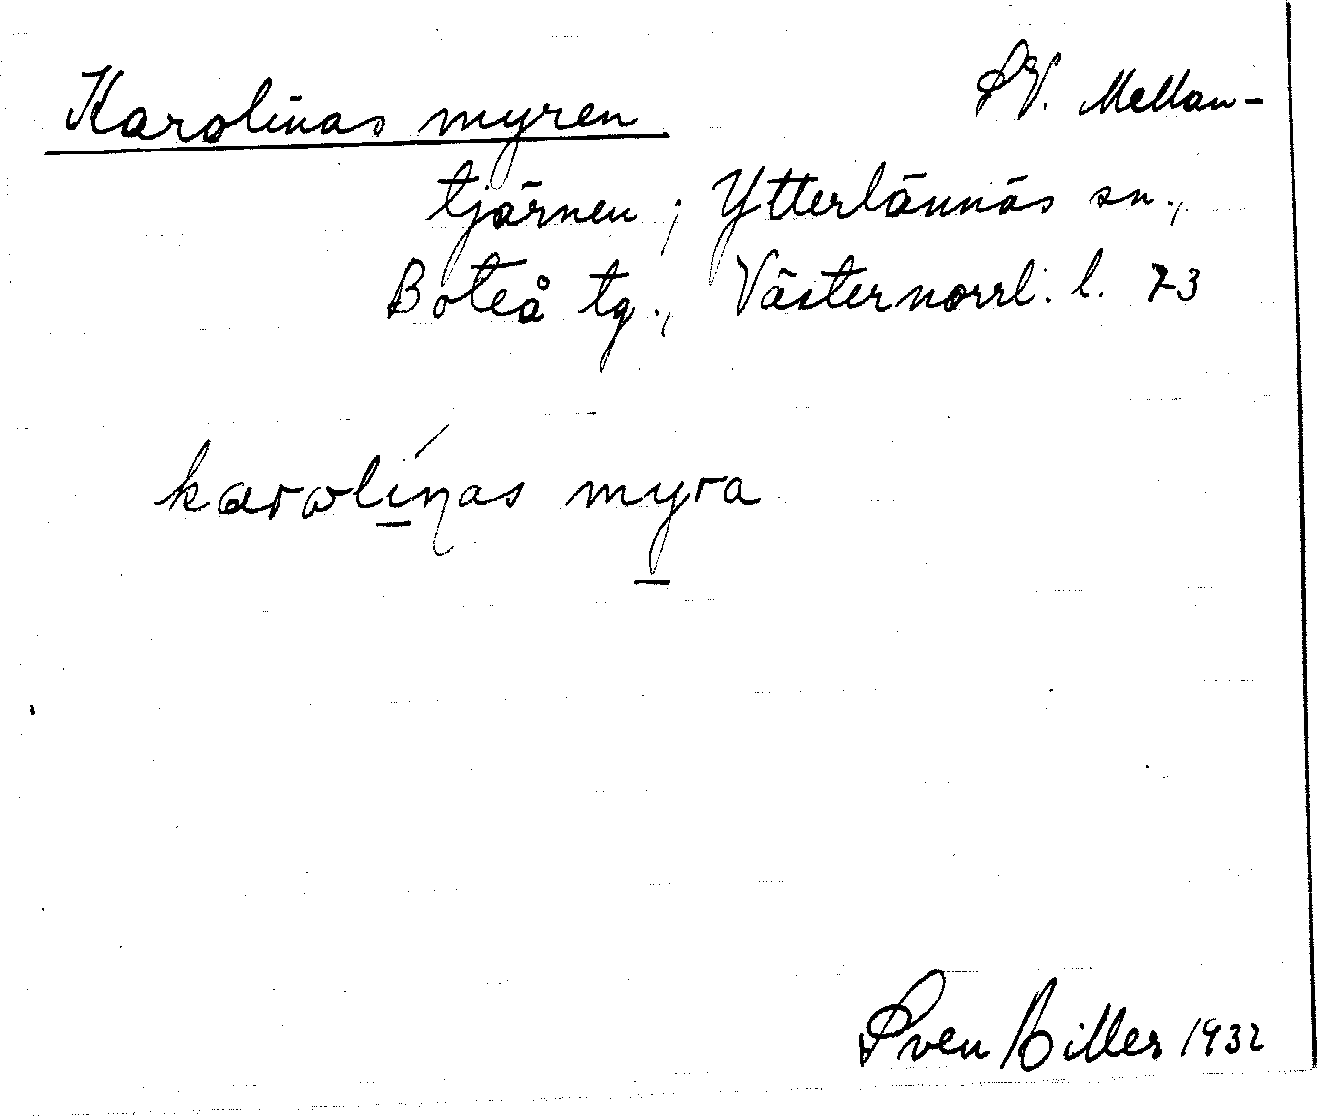 Karolinas myren SV. Mellan-
tjärnen; Ytterlännäs sn.,
Boteå tg., Västernorrl. l. 73
karolíŋas myra
Sven Biller 1932